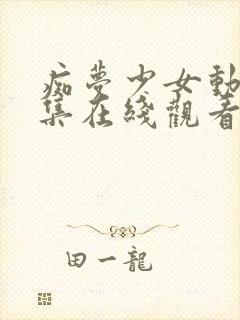 痴夢少女動
集在綫觀看
田一龍